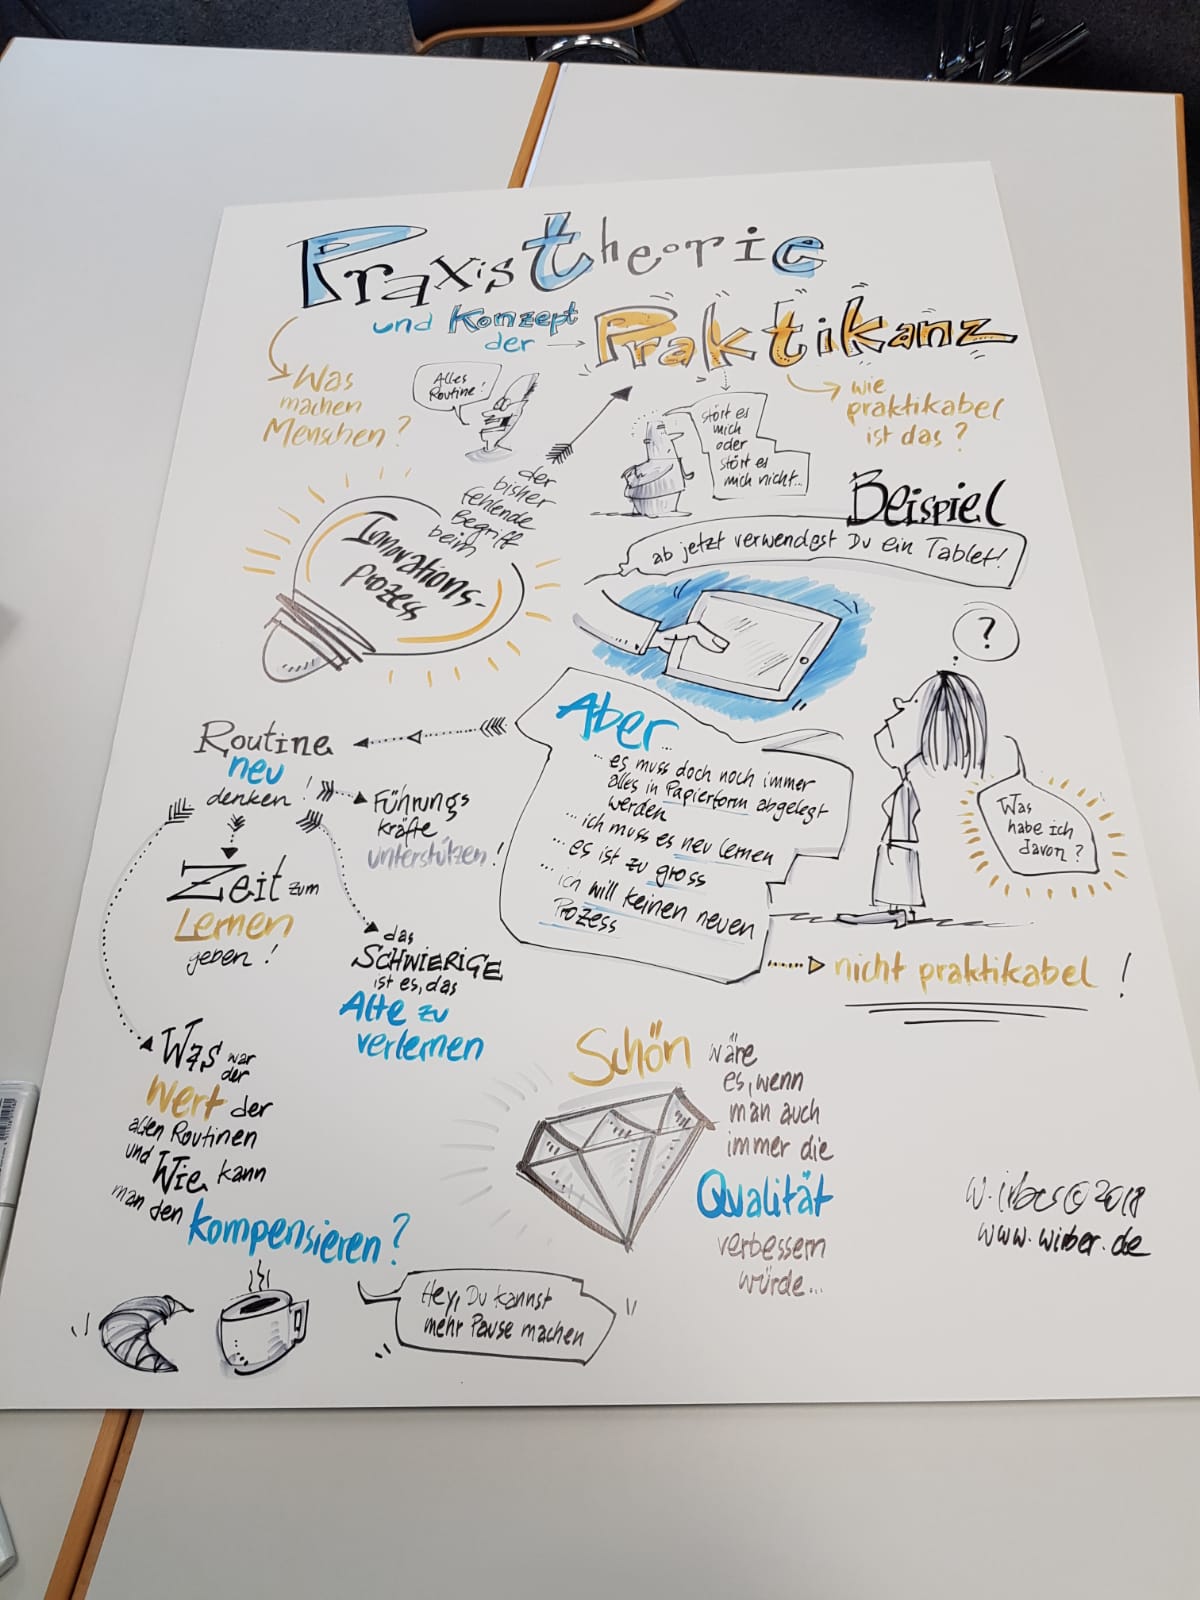 Praxistheorie
und Konzept
der
Praktikanz
Was
machen
Menschen?
Alles
Routine!
stört es
mich
oder
stört es
mich nicht...
wie
praktikabel
ist das?
der
bisher
fehlende
Begriff
beim
Innovations-
prozess
Beispiel
ab jetzt verwendest Du ein Tablet!
?
Aber...
...es muss doch noch immer
alles in Papierform abgelegt
werden
...ich muss es neu lernen
...es ist zu gross
...ich will keinen neuen
Prozess
Was
habe ich
davon?
nicht praktikabel!
Routine
neu
denken!
Führungs
kräfte
unterstützen!
Zeit zum
Lernen
geben!
das
SCHWIERIGE
ist es, das
Alte zu
verlernen
Was war
der
Wert der
alten Routinen
und Wie kann
man den
kompensieren?
Hey, Du kannst
mehr Pause machen
Schön wäre
es, wenn
man auch
immer die
Qualität
verbessern
würde...
©2018
www.wirber.de